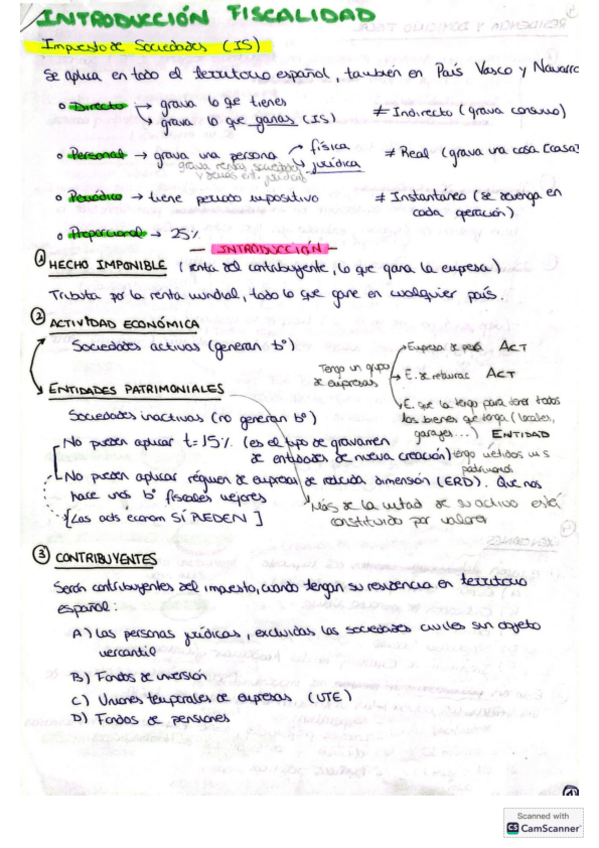 INTRODUCCIÓN FISCALIDAD
Impuesto de Sociedades (IS)
Se aplica en todo el territorio español, también en País Vasco y Navarra
o Directo → grava lo que tienes
↘ grava lo que ganas (IS)
≠ Indirecto (grava consumo)
o Personal → grava una persona física
jurídica
≠ Real (grava una cosa [casa]
grava renta sociedades
y demás ent. jurídicas
o Periódico → tiene periodo impositivo
≠ Instantáneo (se devenga en
cada operación)
o Proporcional → 25%
INTRODUCCIÓN
① HECHO IMPONIBLE (renta del contribuyente, lo que gana la empresa)
Tributa por la renta mundial, todo lo que gane en cualquier país.
② ACTIVIDAD ECONÓMICA
Sociedades activas (generan bº)
Tengo un grupo
de empresas
Empresa de ACT
E. de ACT
E. que la tengo para tener todos
los bienes que tenga (locales,
garajes...) ENTIDAD
ENTIDADES PATRIMONIALES
Sociedades inactivas (no generan bº)
- No pueden aplicar t=15% (es el tipo de gravamen
de entidades de nueva creación)
tengo metidos mis
patrimonios
- No pueden aplicar régimen de empresas de reducida dimensión (ERD). Que nos
hace unos bº fiscales mejores
[Las acts econom SÍ PUEDEN]
Más de la mitad de su activo está
constituido por valores
③ CONTRIBUYENTES
Serán contribuyentes del impuesto, cuando tengan su residencia en territorio
español:
A) Las personas jurídicas, excluidas las sociedades civiles sin objeto
mercantil
B) Fondos de inversión
C) Uniones temporales de empresas (UTE)
D) Fondos de pensiones
1
Scanned with
CS CamScanner